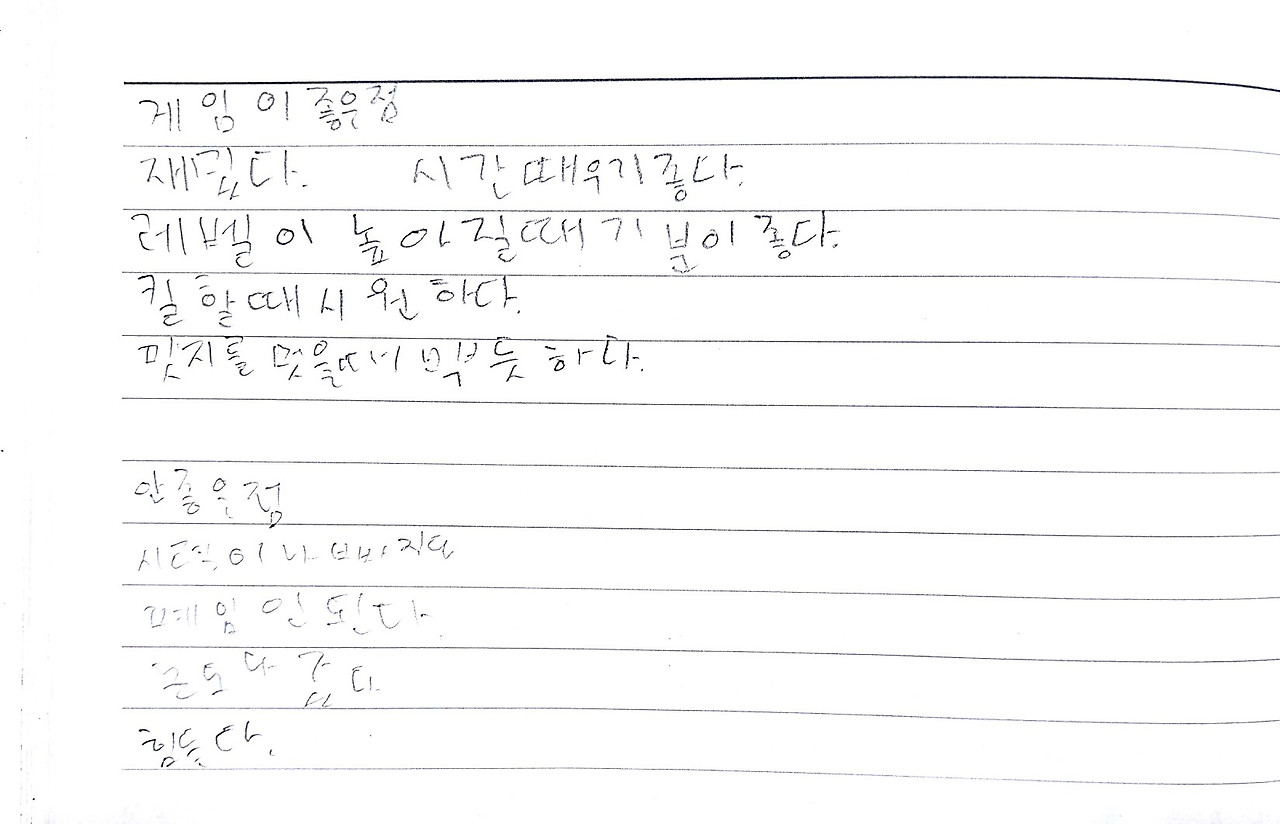 게임이 좋은점
재밌다. 시간때우기좋다.
레벨이 높아질때 기분이좋다.
킬할때시원하다.
밋지를 멋을때 뿌듯하다.
안좋은점
시력이나빠지다
폐임 된다.
다
힘들다.